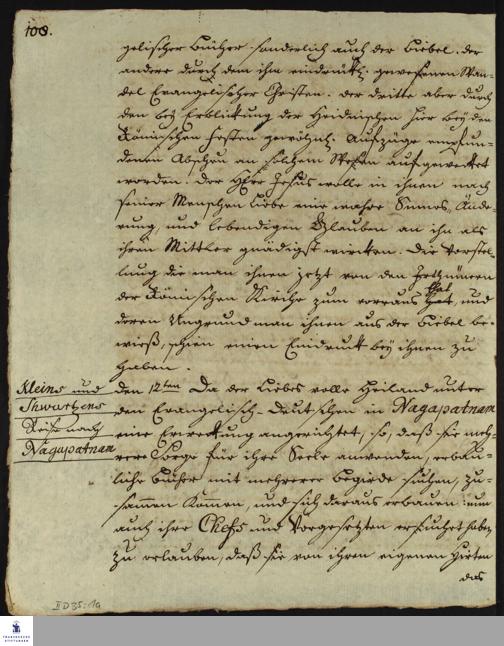 108.
gelischer Bücher sonderlich auch der Biebel. der
andere durch dem ihm eindrückl. gewesenen Wan-
del Evangelischer Christen. der dritte aber durch
den bey Erblickung der Heidnischen hier bey den
Römischen Festen gewöhnl. Aufzüge empfun-
denen Abscheu an solchem Wesen aufgewecket
worden. Der HErr Jesus wolle in ihnen nach
seiner Menschen Liebe eine wahre Sinnes Ände-
rung, und lebendigen Glauben an ihn als
ihren Mittler gnädigst wircken. Die Vorstel-
lung die man ihnen jetzt von den Irrthümern
der Römischen Kirche zum vorraus that, und
deren Ungrund man ihnen aus der Biebel be-
wieß, schien einen Eindruck bey ihnen zu
haben.
Kleins und
Schwartzens
Reise nach
Nagapatnam
Den 12ten Da der Liebes volle Heiland unter
den Evangelisch-Deutschen in Nagapatnam
eine Erweckung angerichtet, so, daß sie meh-
rere Sorge für ihre Seele anwenden, erbau-
liche Bücher mit mehrerer Begierde suchen, zu-
sammen kommen, und sich daraus erbauen: nun
auch ihre Chefs und Vorgesetzten ersuchet haben,
zu erlauben, daß sie von ihren eigenen Hirten
das
II D 35:1a
FRANCKESCHE
STIFTUNGEN